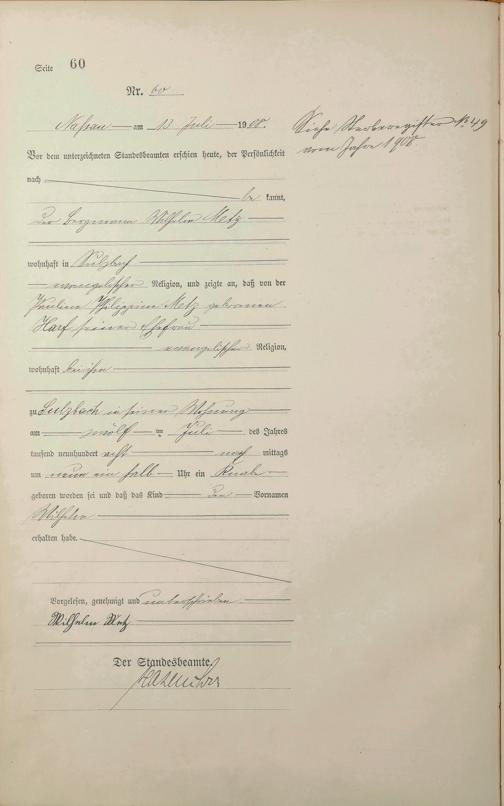 Seite 60
Nr. 60
Nassau am 13 Juli 1908.
Siehe Sterberegister No 49
vom Jahre 1908
Vor dem unterzeichneten Standesbeamten erschien heute, der Persönlichkeit
nach
be kannt,
der Bergmann Wilhelm Metz
wohnhaft in Sulzbach
evangelischer Religion, und zeigte an, daß von der
Pauline Philippine Metz geborenen
Harf seiner Ehefrau
evangelischer Religion,
wohnhaft bei ihm
zu Sulzbach in seiner Wohnung
am zwölf ten Juli des Jahres
tausend neunhundert acht nach mittags
um neun ein halb Uhr ein Knabe
geboren worden sei und daß das Kind den Vornamen
Wilhelm
erhalten habe.
Vorgelesen, genehmigt und unterschrieben
Wilhelm Metz
Der Standesbeamte.